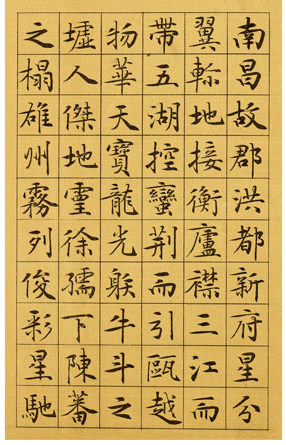 南昌故郡洪都新府星分
翼軫地接衡廬襟三江而
帶五湖控蠻荊而引甌越
物華天寶龍光射牛斗之
墟人傑地靈徐孺下陳蕃
之榻雄州霧列俊彩星馳